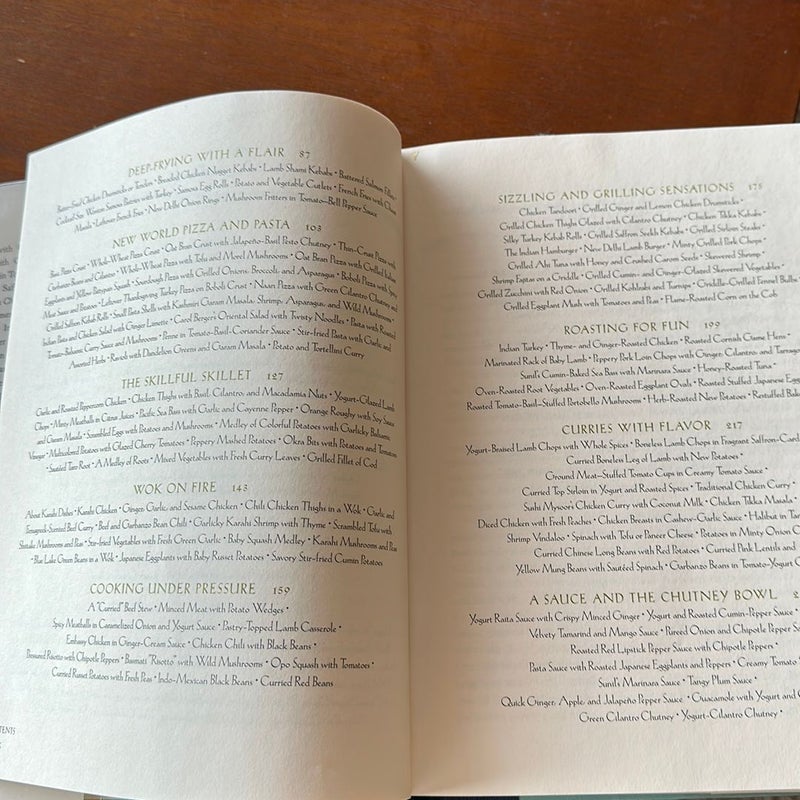 DEEP-FRYING WITH A FLAIR 87
Batter-Fried Chicken Drumsticks or Tenders • Breaded Chicken Nugget Kebabs • Lamb Shami Kebabs • Battered Salmon Fillets
Cocktail Size Won Ton Samosa Pastries with Turkey • Samosa Egg Rolls • Potato and Vegetable Cutlets • French Fries with
Masala • Leftover French Fries • New Delhi Onion Rings • Mushroom Fritters in Tomato–Bell Pepper Sauce
NEW WORLD PIZZA AND PASTA 103
Basic Pizza Crust • Whole-Wheat Pizza Crust • Oat Bran Crust with Jalapeño-Basil Pesto Chutney • Thin-Crust Pizza with
Garbanzo Beans and Cilantro • Whole-Wheat Pizza with Tofu and Morel Mushrooms • Oat Bran Pizza with Grilled Indian
Eggplants and Yellow Pattypan Squash • Sourdough Pizza with Grilled Onions, Broccoli, and Asparagus • Boboli Pizza with Spicy
Meat Sauce and Potatoes • Leftover Thanksgiving Turkey Pizza on Boboli Crust • Naan Pizza with Green Cilantro Chutney and
Grilled Saffron Kebab Rolls • Small Pasta Shells with Kashmiri Garam Masala, Shrimp, Asparagus, and Wild Mushrooms •
Indian Pasta and Chicken Salad with Ginger Limette • Carol Berger's Oriental Salad with Twisty Noodles • Pasta with Roasted
Tomato-Balsamic Curry Sauce and Mushrooms • Penne in Tomato-Basil-Coriander Sauce • Stir-fried Pasta with Garlic and
Assorted Herbs • Ravioli with Dandelion Greens and Garam Masala • Potato and Tortellini Curry
THE SKILLFUL SKILLET 127
Garlic and Roasted Peppercorn Chicken • Chicken Thighs with Basil, Cilantro, and Macadamia Nuts • Yogurt-Glazed Lamb
Chops • Minty Meatballs in Citrus Juices • Pacific Sea Bass with Garlic and Cayenne Pepper • Orange Roughy with Soy Sauce
and Garam Masala • Scrambled Eggs with Potatoes and Mushrooms • Medley of Colorful Potatoes with Garlicky Balsamic
Vinegar • Multicolored Potatoes with Glazed Cherry Tomatoes • Peppery Mashed Potatoes • Okra Bits with Potatoes and Tomatoes
• Sautéed Taro Root • A Medley of Roots • Mixed Vegetables with Fresh Curry Leaves • Grilled Fillet of Cod
WOK ON FIRE 143
About Karahi Dishes • Karahi Chicken • Ginger, Garlic, and Sesame Chicken • Chili Chicken Thighs in a Wok • Garlic and
Fenugreek-Scented Beef Curry • Beef and Garbanzo Bean Chili • Garlicky Karahi Shrimp with Thyme • Scrambled Tofu with
Shiitake Mushrooms and Peas • Stir-fried Vegetables with Fresh Green Garlic • Baby Squash Medley • Karahi Mushrooms and Peas
• Blue Lake Green Beans in a Wok • Japanese Eggplants with Baby Russet Potatoes • Savory Stir-fried Cumin Potatoes
COOKING UNDER PRESSURE 159
A "Curried" Beef Stew • Minced Meat with Potato Wedges •
Spicy Meatballs in Caramelized Onion and Yogurt Sauce • Pastry-Topped Lamb Casserole •
Embassy Chicken in Ginger-Cream Sauce • Chicken Chili with Black Beans •
Pressured Risotto with Chipotle Peppers • Basmati "Risotto" with Wild Mushrooms • Opo Squash with Tomatoes •
Curried Russet Potatoes with Fresh Peas • Indo-Mexican Black Beans • Curried Red Beans
SIZZLING AND GRILLING SENSATIONS 175
Chicken Tandoori • Grilled Ginger and Lemon Chicken Drumsticks •
Grilled Chicken Thighs Glazed with Cilantro Chutney • Chicken Tikka Kababs •
Silky Turkey Kebab Rolls • Grilled Saffron Seekh Kebabs • Grilled Sirloin Steaks •
The Indian Hamburger • New Delhi Lamb Burger • Minty Grilled Pork Chops •
Grilled Ahi Tuna with Honey and Crushed Carom Seeds • Skewered Shrimp •
Shrimp Papita on a Griddle • Grilled Cumin- and Ginger-Glazed Skewered Vegetables •
Grilled Zucchini with Red Onion • Grilled Kohlrabi and Turnips • Griddle-Grilled Fennel Bulbs
Grilled Eggplant Mush with Tomatoes and Peas • Flame-Roasted Corn on the Cob
ROASTING FOR FUN 199
Indian Turkey • Thyme- and Ginger-Roasted Chicken • Roasted Cornish Game Hens •
Marinated Rack of Baby Lamb • Peppery Pork Loin Chops with Ginger, Cilantro, and Tarragon
Sunil's Cumin-Baked Sea Bass with Marinara Sauce • Honey-Roasted Tuna •
Oven-Roasted Root Vegetables • Oven-Roasted Eggplant Ovals • Roasted Stuffed Japanese
Roasted Tomato-Basil–Stuffed Portobello Mushrooms • Herb-Roasted New Potatoes • Restuffed
CURRIES WITH FLAVOR 217
Yogurt-Braised Lamb Chops with Whole Spices • Boneless Lamb Chops in Fragrant Saffron-
Curried Boneless Leg of Lamb with New Potatoes •
Ground Meat–Stuffed Tomato Cups in Creamy Tomato Sauce •
Curried Top Sirloin in Yogurt and Roasted Spices • Traditional Chicken Curry •
Sushi Mysoor's Chicken Curry with Coconut Milk • Chicken Tikka Masala •
Diced Chicken with Fresh Peaches • Chicken Breasts in Cashew-Garlic Sauce • Halibut in
Shrimp Vindaloo • Spinach with Tofu or Paneer Cheese • Potatoes in Minty Onion
Curried Chinese Long Beans with Red Potatoes • Curried Pink Lentils and
Yellow Mung Beans with Sautéed Spinach • Garbanzo Beans in Tomato-Yogurt
A SAUCE AND THE CHUTNEY BOWL 2
Yogurt Raita Sauce with Crispy Minced Ginger • Yogurt and Roasted Cumin-Pepper Sauce •
Velvety Tamarind and Mango Sauce • Pureed Onion and Chipotle Pepper
Roasted Red Lipstick Pepper Sauce with Chipotle Peppers •
Pasta Sauce with Roasted Japanese Eggplants and Peppers • Creamy Tomato
Sunil's Marinara Sauce • Tangy Plum Sauce •
Quick Ginger, Apple, and Jalapeño Pepper Sauce • Guacamole with Yogurt and
Green Cilantro Chutney • Yogurt-Cilantro Chutney •